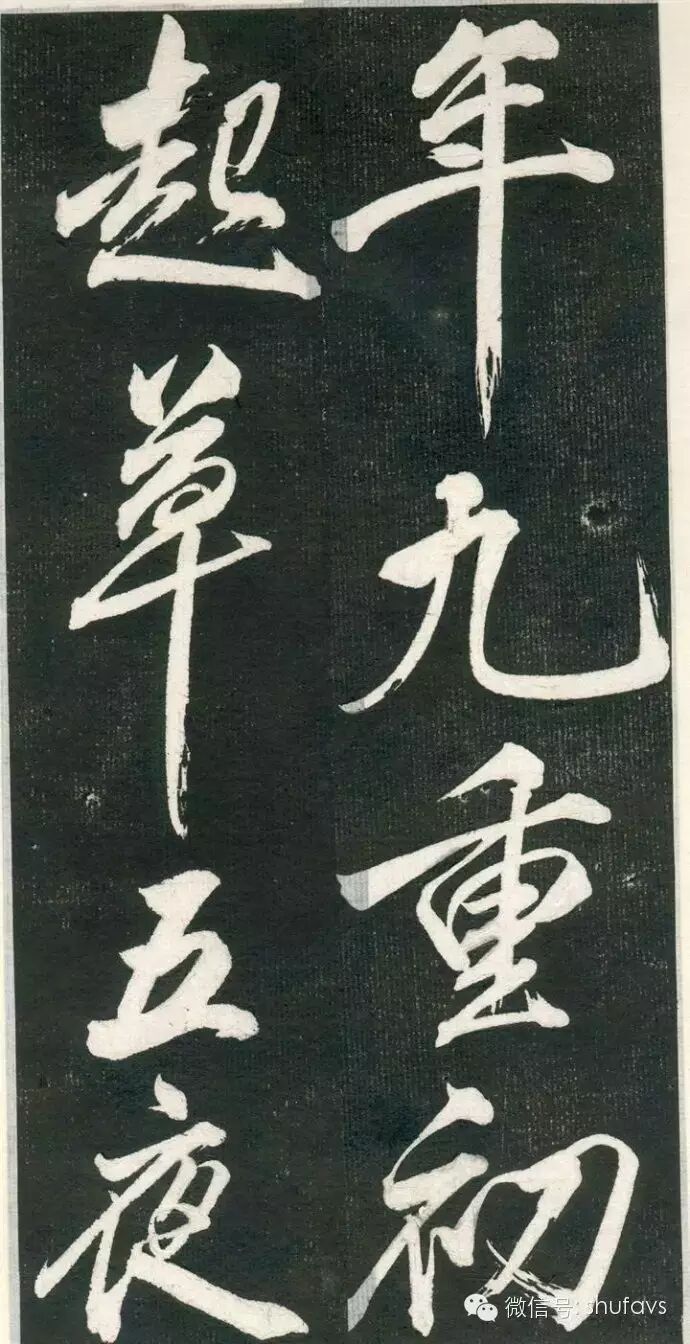 年九重初
起草五夜
微信号: shufavs